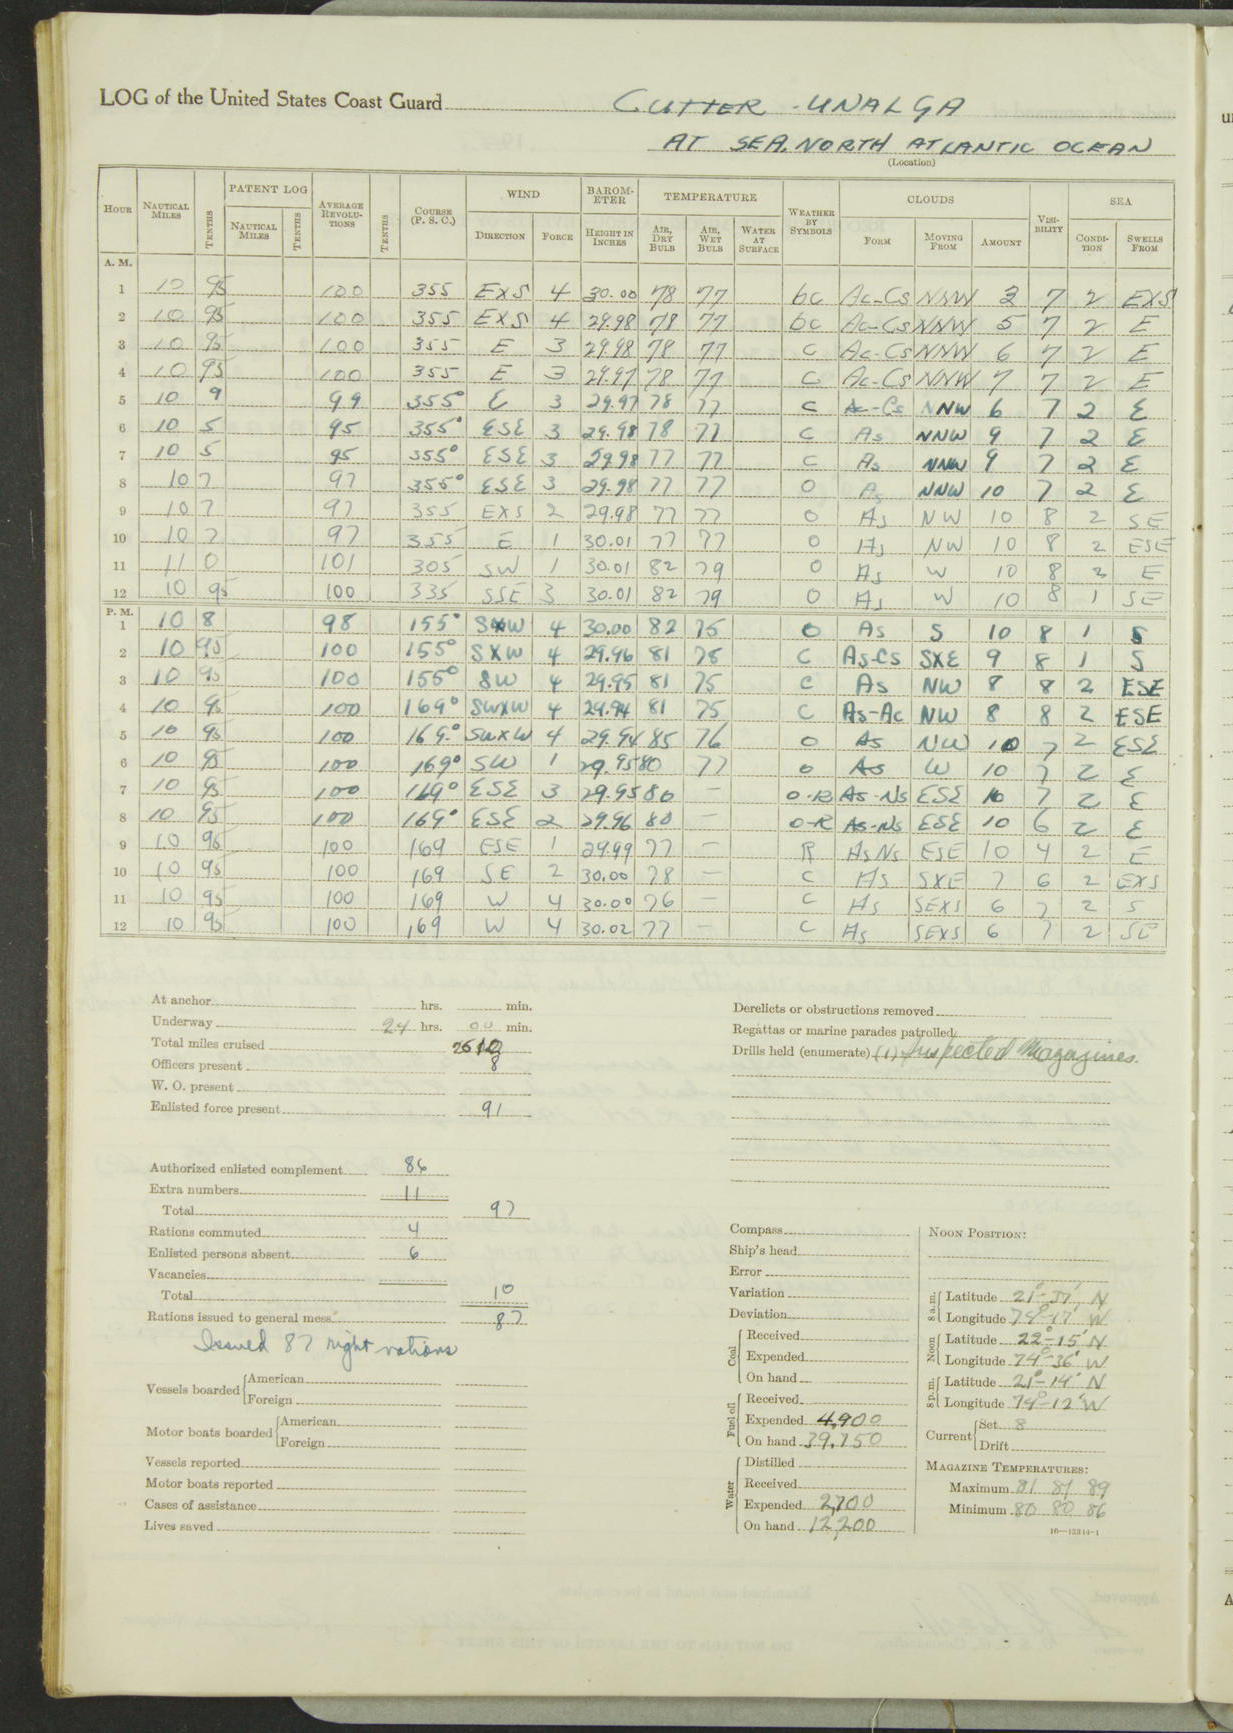 LOG of the United States Coast Guard CUTTER - UNALGA
AT SEA, NORTH ATLANTIC OCEAN
(Location)
HOUR NAUTICAL MILES TENTHS PATENT LOG NAUTICAL MILES TENTHS AVERAGE REVOLUTIONS TENTHS COURSE (P. S. C.) WIND DIRECTION FORCE BAROMETER HEIGHT IN INCHES TEMPERATURE AIR, DRY BULB AIR, WET BULB WATER AT SURFACE WEATHER BY SYMBOLS CLOUDS FORM MOVING FROM AMOUNT VISIBILITY SEA CONDITION SWELLS FROM
A. M.
1 10 95 100 355 EXS 4 30.00 78 77 bc Ac-Cs NNW 3 7 2 EXS
2 10 95 100 355 EXS 4 29.98 78 77 bc Ac-Cs NNW 5 7 2 E
3 10 95 100 355 E 3 29.98 78 77 C Ac-Cs NNW 6 7 2 E
4 10 95 100 355 E 3 29.97 78 77 C Ac-Cs NNW 7 7 2 E
5 10 9 99 355° E 3 29.97 78 77 C Ac-Cs NNW 6 7 2 E
6 10 5 95 355° ESE 3 29.98 78 77 C As NNW 9 7 2 E
7 10 5 95 355° ESE 3 29.98 77 77 C As NNW 9 7 2 E
8 10 7 97 355° ESE 3 29.98 77 77 O As NNW 10 7 2 E
9 10 7 97 355 EXS 2 29.98 77 77 O As NW 10 8 2 SE
10 10 7 97 355 E 1 30.01 77 77 O As NW 10 8 2 ESE
11 11 0 101 305 SW 1 30.01 82 79 O As W 10 8 2 E
12 10 95 100 335 SSE 3 30.01 82 79 O As W 10 8 1 SE
P. M.
1 10 8 98 155° SXW 4 30.00 82 75 O As S 10 8 1 S
2 10 95 100 155° SXW 4 29.96 81 75 C As-Cs SXE 9 8 1 S
3 10 95 100 155° SW 4 29.95 81 75 C As NW 8 8 2 ESE
4 10 95 100 169° SWXW 4 29.94 81 75 C As-Ac NW 8 8 2 ESE
5 10 95 100 169° SWXW 4 29.94 85 76 O As NW 10 7 2 ESE
6 10 95 100 169° SW 1 29.95 80 77 O As W 10 7 2 E
7 10 95 100 169° ESE 3 29.95 80 — O-R As-Ns ESE 10 7 2 E
8 10 95 100 169° ESE 2 29.96 80 — O-R As-Ns ESE 10 6 2 E
9 10 95 100 169 ESE 1 29.99 77 — R As Ns ESE 10 4 2 E
10 10 95 100 169 SE 2 30.00 78 — C As SXE 7 6 2 EXS
11 10 95 100 169 W 4 30.00 76 — C As SEXS 6 7 2 S
12 10 95 100 169 W 4 30.02 77 — C As SEXS 6 7 2 SE
At anchor hrs. min.
Underway 24 hrs. 00 min.
Total miles cruised
Officers present 8
W. O. present
Enlisted force present 91
Authorized enlisted complement 86
Extra numbers 11
Total 97
Rations commuted 4
Enlisted persons absent 6
Vacancies
Total 10
Rations issued to general mess 87
Issued 87 night rations
Vessels boarded American
Foreign
Motor boats boarded American
Foreign
Vessels reported
Motor boats reported
Cases of assistance
Lives saved
Derelicts or obstructions removed
Regattas or marine parades patrolled
Drills held (enumerate) (1) Inspected Magazines.
Compass
Ship's head
Error
Variation
Deviation
Coal Received
Expended
On hand
Fuel oil Received
Expended 4,900
On hand 39,150
Water Distilled
Received
Expended 2,700
On hand 12,200
NOON POSITION:
8 a.m. Latitude 21°-37' N
Longitude 74°-17' W
Noon Latitude 22°-15' N
Longitude 74°-36' W
8 p.m. Latitude 21°-14' N
Longitude 74°-12' W
Current Set 8
Drift
MAGAZINE TEMPERATURES:
Maximum 81 81 89
Minimum 80 80 86
16—13314-1